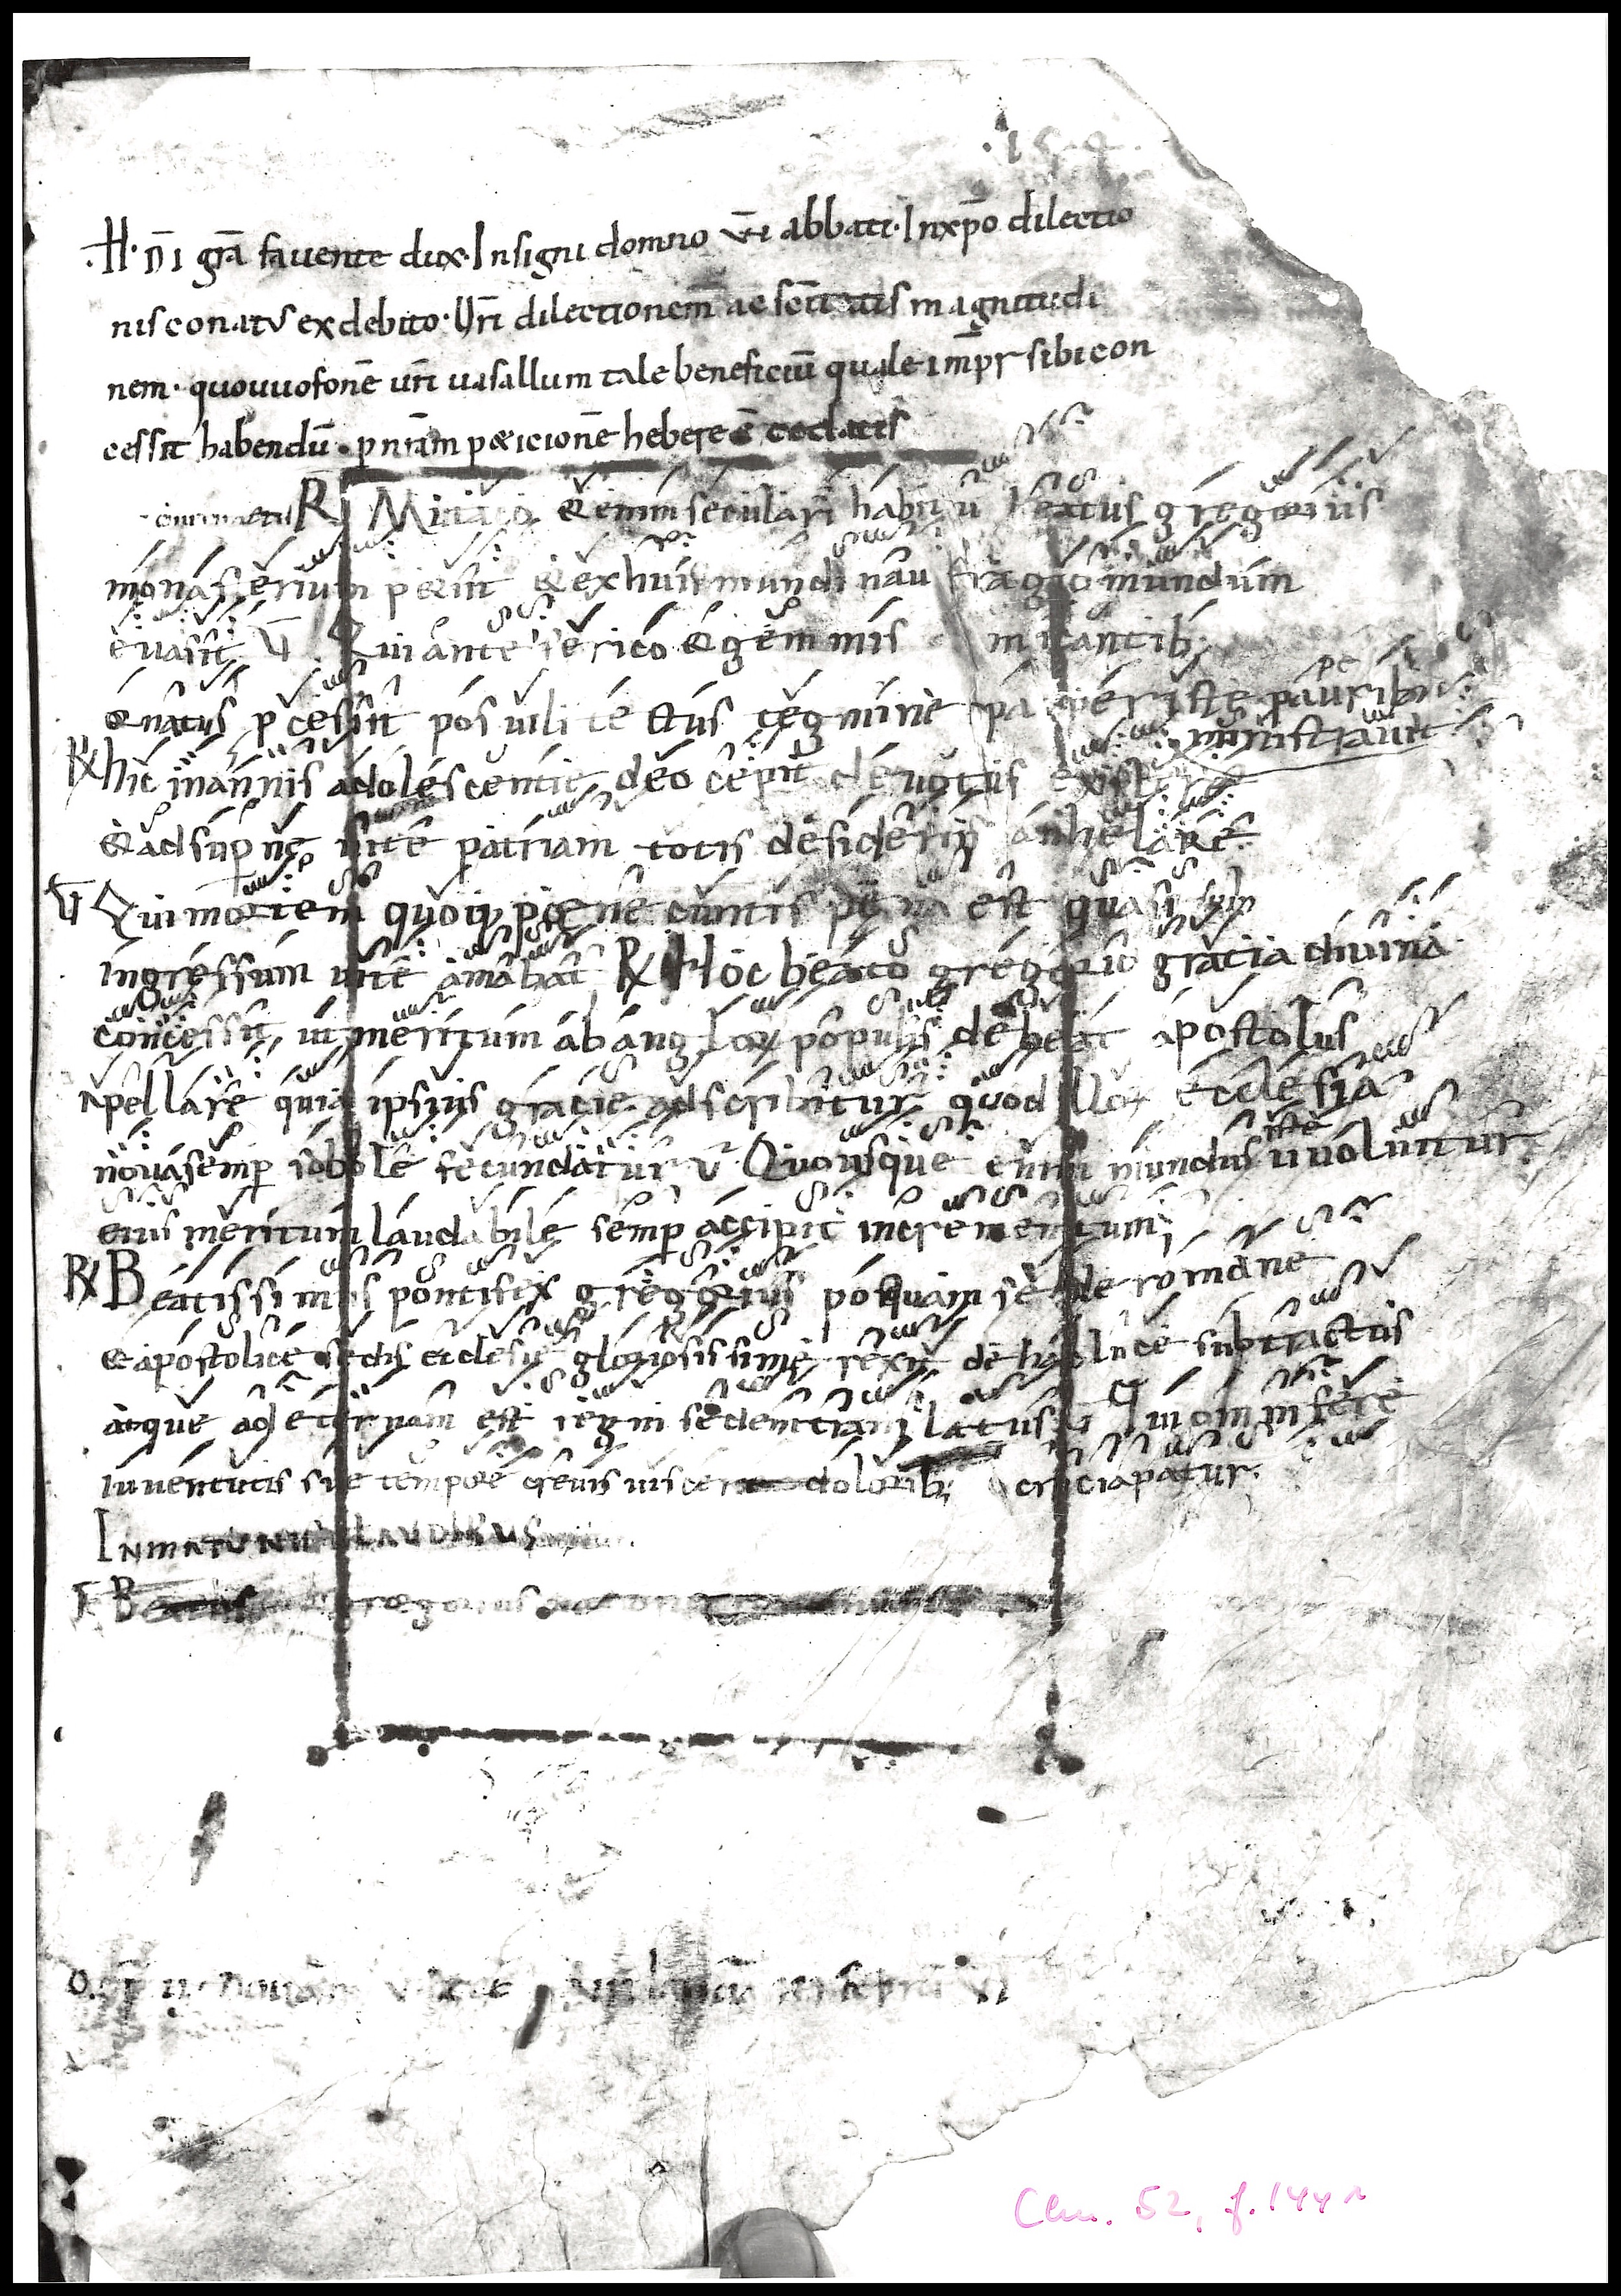 .154.
.H. dī grā favente dux. Insigni domno ūi abbati. Inxpō dilectio
nis conatus ex debito. Uri dilectionem ac sc̄itatis magnitudi
nem. quo vuofonē uri uasallum tale beneficiū quale imp̄r sibi con
cessit habendū. p nr̄am p&icionē hebere
R Mutato & enim seculari habitu beatus gregorius
monasterium p&iit & ex huius mundi naufragio mundum
euasit V Qui ante serico & gemmis micantib;
ornatus pcessit pos uili tectus tegmine pauperiste pauribus
pe
ministrauit
R hic in annis adolescentie deo cepit deuotus existere
& ad supne uite patriam totis desideriis anhelare
V Qui mortem quoq; pene cunctis pena est quasi
ingressum uite amabat R Hoc beato gregorio gracia diuina
concessit ut meritum ab anglor populis debeat apostolus
apellare quia ipsius gracie adscribitur quod illor ecclesia
noua semp sobole fecundatur V Quousque enim mundus iste uoluitur
eius meritum laudabile semp accipit incrementum
R Beatissimus pontifex gregorius posquam sede romane
& apostolice sedis ecclesie gloriosissime rexit de hac luce subtractus
atque ad eternam est regni sedem translatus V Qui omni fere
iuuentutis sue tempore creuis uiscerum dolorib; cruciapatur.
In matutinis laudibus
Beatus gregorius
Clm. 52, f. 144r